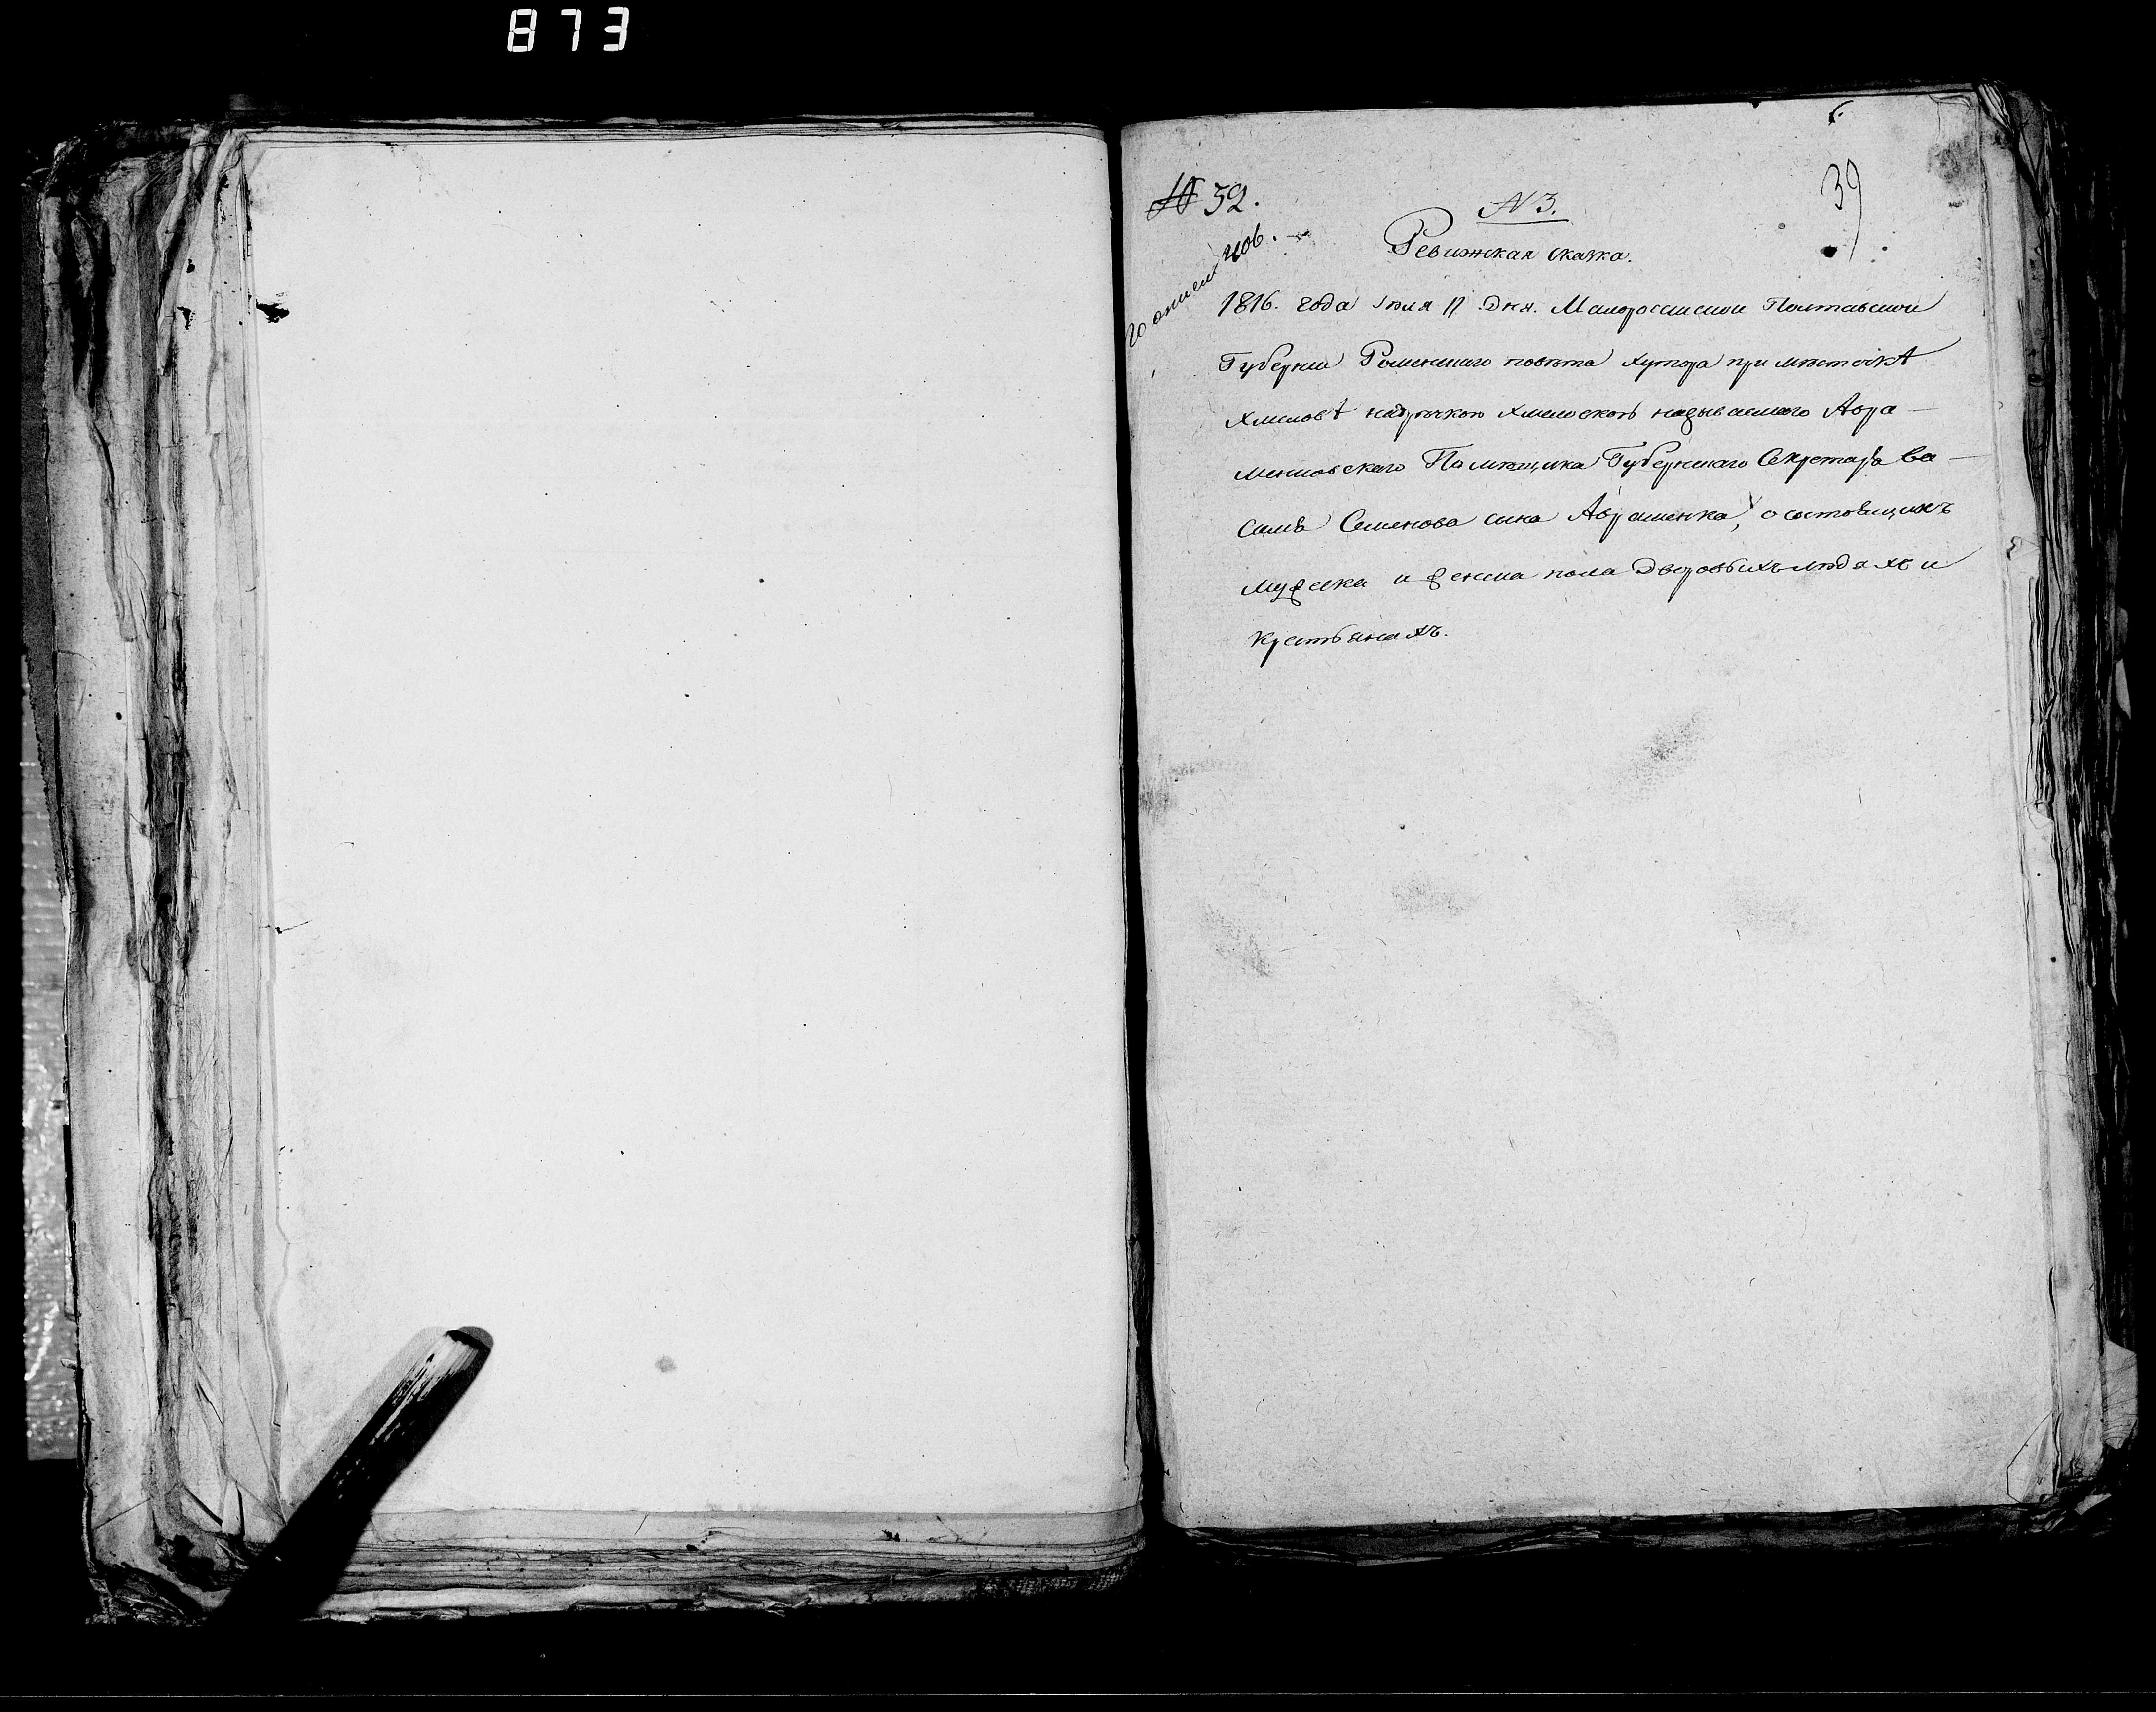 873
39
№ 52.
№ 3.
Ревижская сказка.
1816. года Іюля 11 Дня. Малоросииской Полтавской
Губернии Роменского повѣта хутора при мѣстечкѣ
Хмиловѣ надрѣчкою Хмиловкою називаемого Авра-
менковского Помѣщика Губернского Секретаря Ва-
силя Семенова сына Авраменка, о состоящихъ
мужеска и женска пола Дворовыхъ людяхъ и
крестьянахъ.